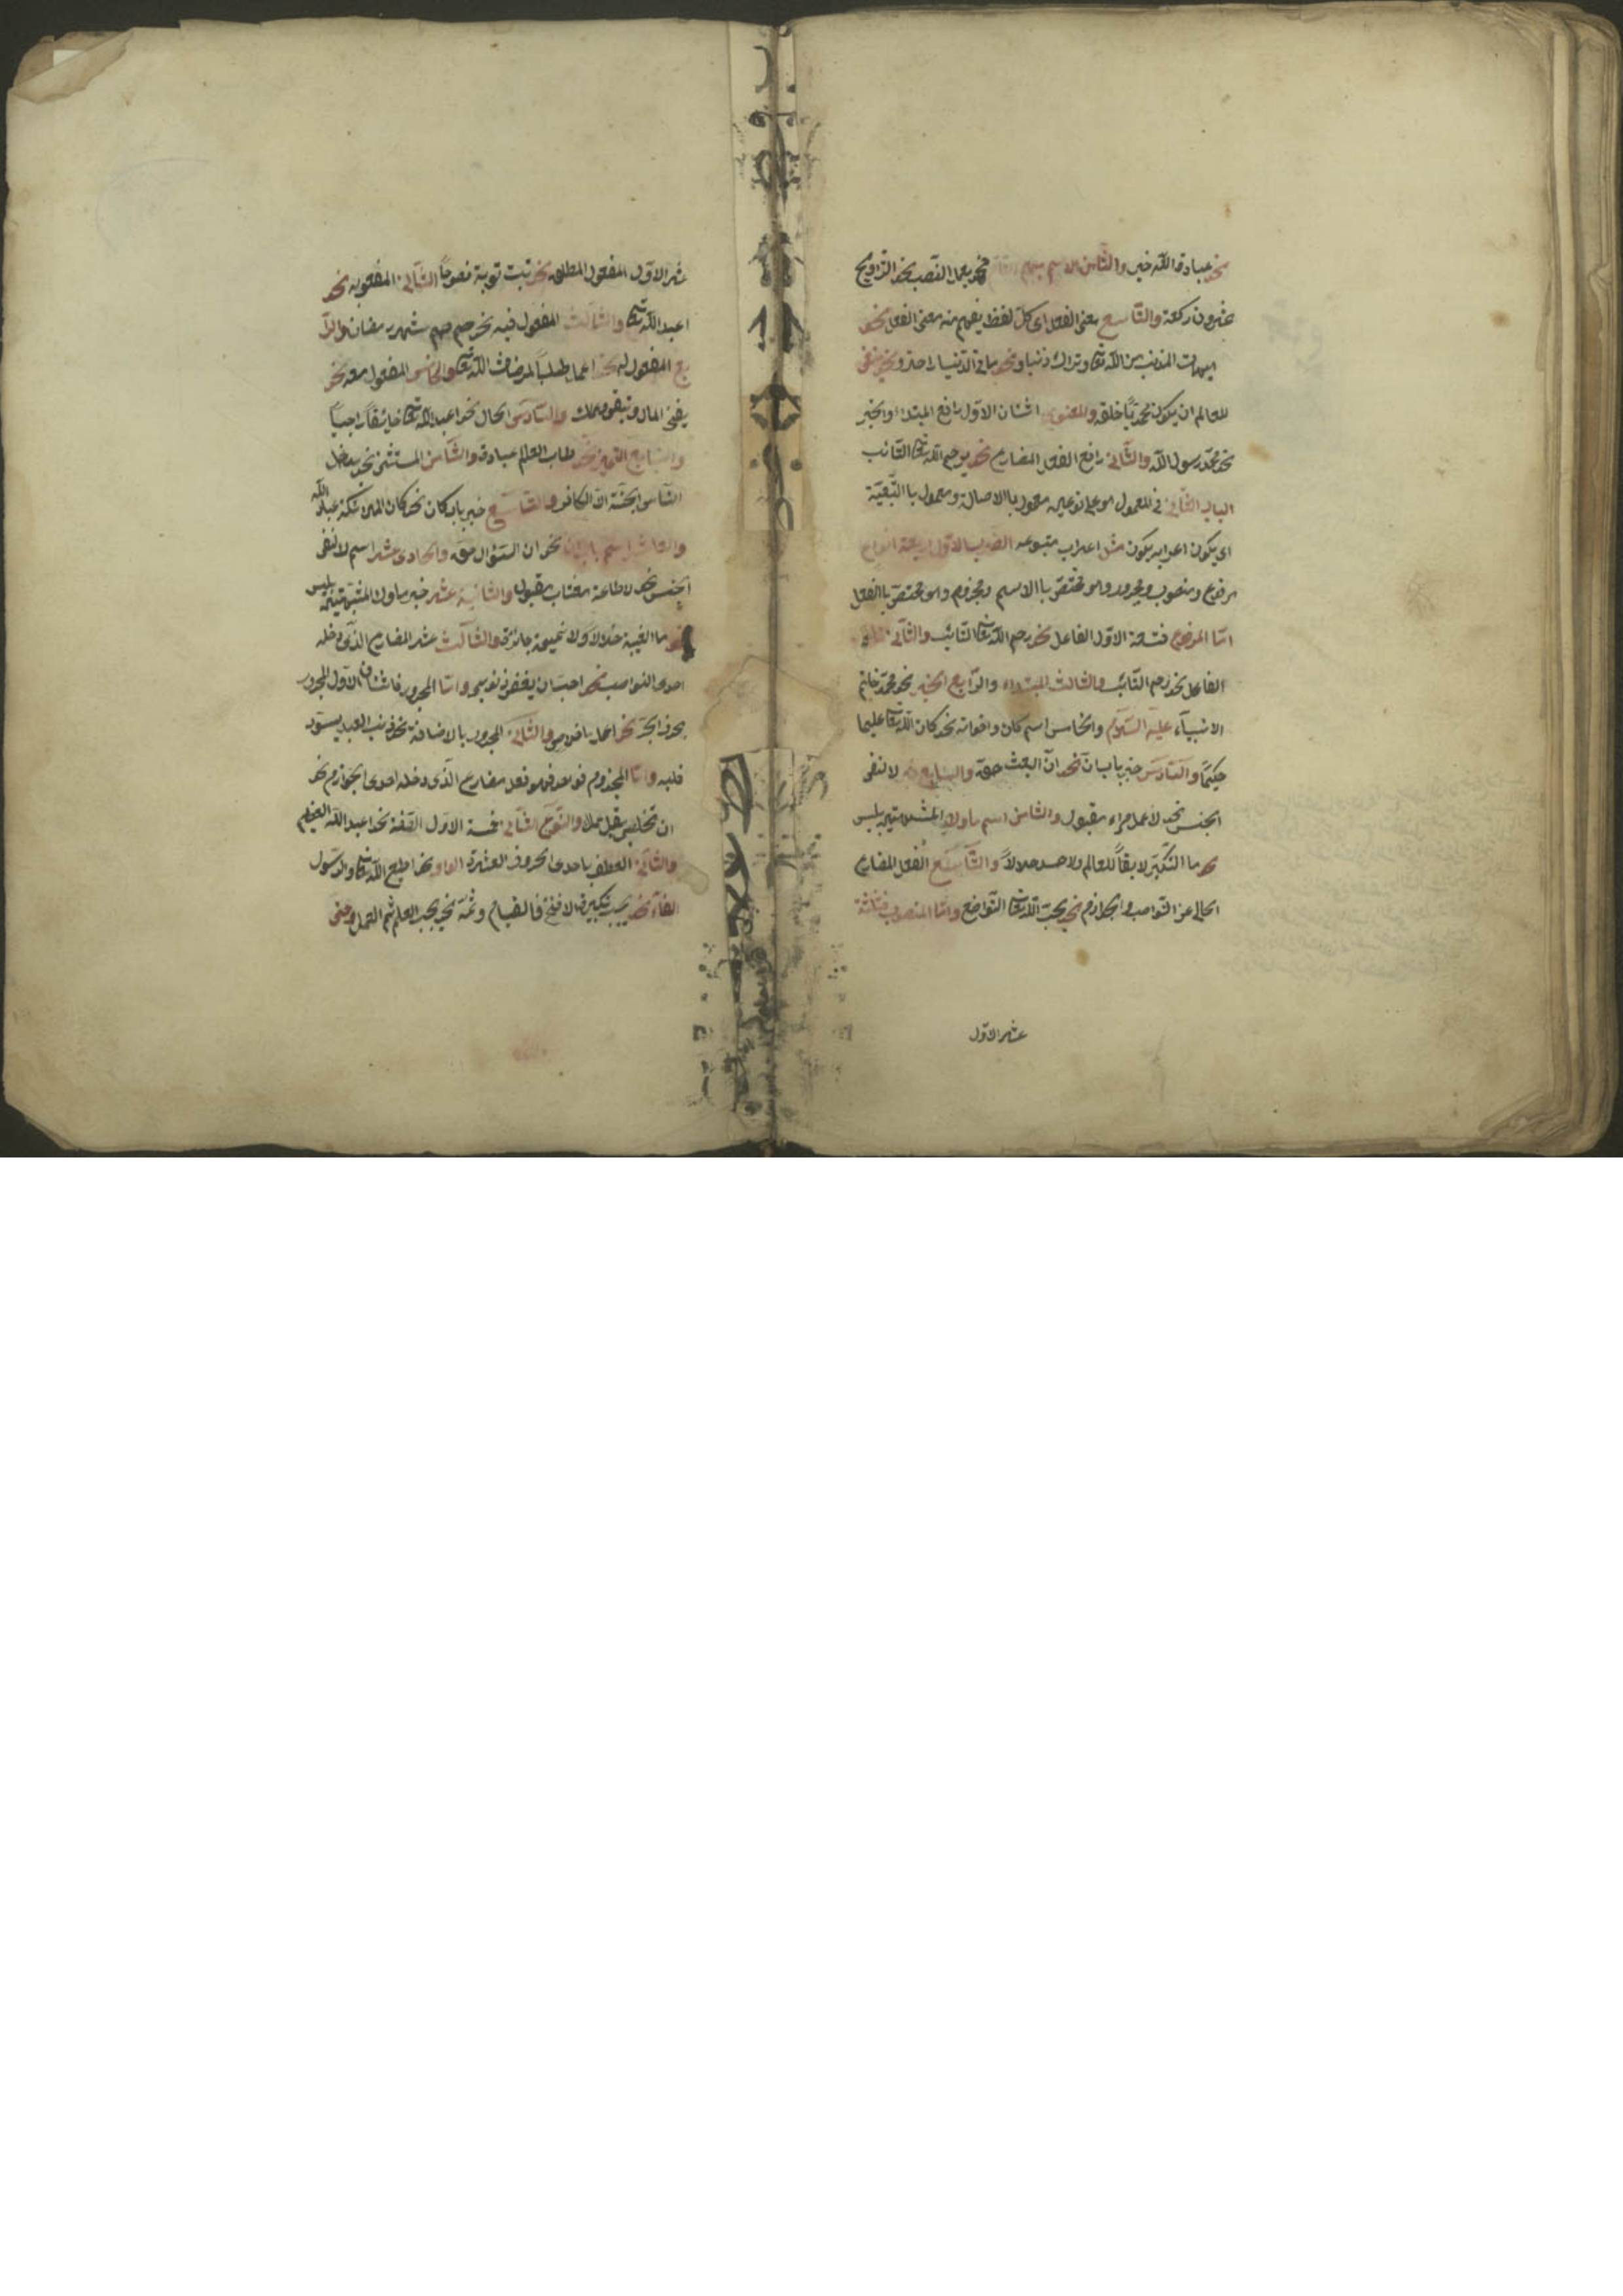 نحو عبادة الله خير والثامن الاسم المبهم التام فهو يعمل النصب نحو التراويح
عشرون ركعة والتاسع معنى الفعل اى كل لفظ يفهم منه معنى الفعل نحو
هيهات المذنب من الله تعالى وتراك ذنبا ونحو ما فى الدنيا راحة ونحو ينبغى
للعالم ان يكون محمديا خلقه والمعنوى اثنان الاول رافع المبتداء والخبر
نحو محمد رسول الله والثانى رافع الفعل المضارع نحو يرحم الله تعالى التائب
الباب الثانى فى المعمول هو على نوعين معمول باالاصالة ومعمول باالتبعية
اى يكون اعرابه يكون مثل اعراب متبوعه الضرب الاول اربعة انواع
مرفوع ومنصوب ومجرور وهو مختص باالاسم ومجزوم وهو مختص باالفعل
اما المرفوع فتسعة الاول الفاعل نحو رحم الله تعالى التائب والثانى نائب
الفاعل نحو رحم التائب والثالث المبتداء والرابع الخبر نحو محمد خاتم
الانبياء عليه السلام والخامس اسم كان واخواته نحو كان الله تعالى عليما
حكيما والسادس خبر باب ان نحو ان البعث حق والسابع خبر لا لنفى
الجنس نحو لا عمل مراء مقبول والثامن اسم ما ولا المشبهتين بليس
نحو ما التكبر لايقا للعالم ولا حسد حلالا والتاسع الفعل المضارع
الخالى عن النواصب والجوازم نحو يحب الله تعالى التواضع واما المنصوب فثلثة
عشر الاول
عشر الاول المفعول المطلق نحو تبت توبة نصوحا الثانى المفعول به نحو
اعبد الله تعالى والثالث المفعول فيه نحو صم شهر رمضان والرا
بع المفعول له نحو اعمل طلبا لمرضات الله تعالى والخامس المفعول معه نحو
يفنى المال وتبقى وعملك والسادس الحال نحو اعبد الله تعالى خائفا راجيا
والسابع التمييز نحو طاب العالم عبادة والثامن المستثنى نحو يدخل
الناس الجنة الا الكافر والتاسع خبر باب كان نحو كان الملائكة عباد الله
والعاشر اسم باب ان نحو ان السؤال حق والحادى عشر اسم لا لنفى
الجنس نحو لا طاعة مغتاب مقبول والثانية عشر خبر ما ولا المشبهتين بليس
نحو ما الغيبة حلالا ولا نميمة جائزة والثالث عشر المضارع الذى دخله
احدى النواصب نحو احب ان يغفر ذنوبى واما المجرور فاثنان الاول المجرور
بحرف الجر نحو اعمل باخلاص والثانى المجرور بالاضافة نحو ذنب العبد يسود
قلبه واما المجزوم فواحد فهو فعل مضارع الذى دخله احدى الجوازم نحو
ان تخلص يقبل عملك والنوع الثانى خمسة الاول الصفة نحو اعبد الله العظيم
والثانى العطف باحدى الحروف العشرة الواو نحو اطيع الله تعالى والرسول
الفاء نحو يجب تكبيرة الافتتاح فالقيام وثم نحو يجب العلم ثم العمل وحتى